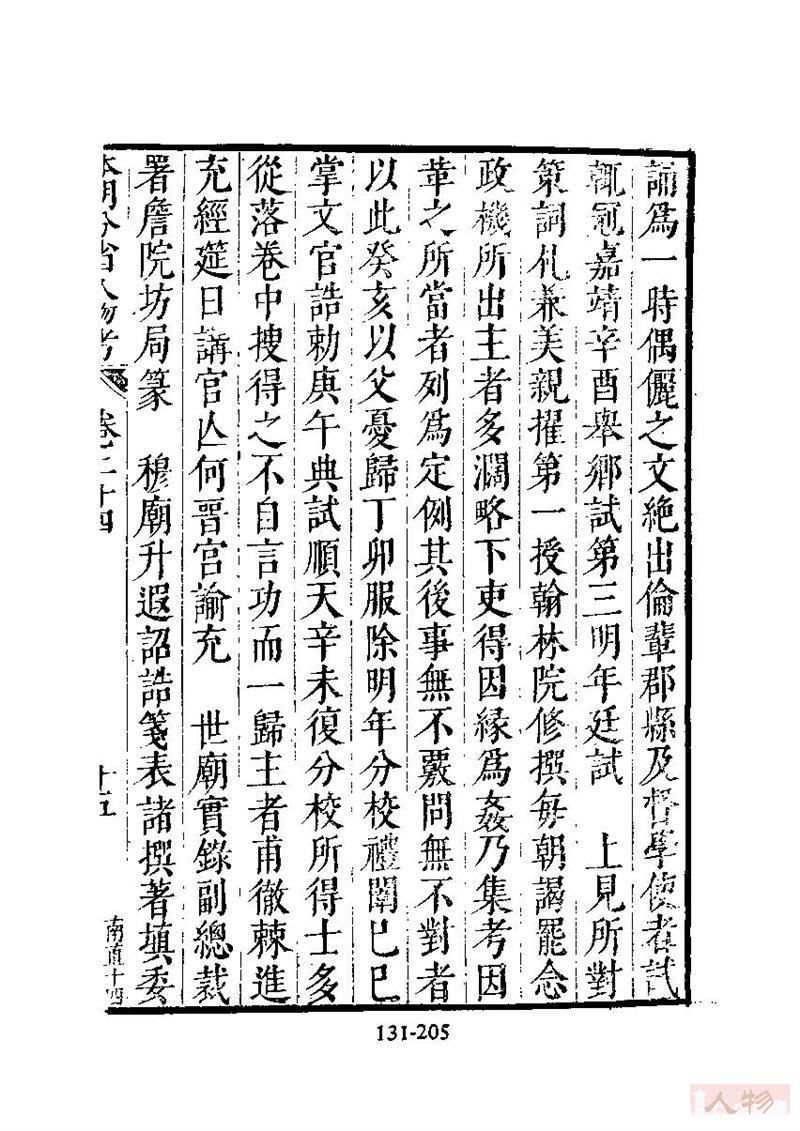 誦爲一時偶儷之文絶出倫輩郡縣及督學使者試
輒冠嘉靖辛酉舉鄉試第三明年廷試　上見所對
策詞札兼美親擢第一授翰林院修撰每朝謁罷念
政機所出主者多濶略下吏得因緣爲姦乃集考因
革之所當者列爲定例其後事無不覈問無不對者
以此癸亥以父憂歸丁卯服除明年分校禮闈巳巳
掌文官誥勅庚午典試順天辛未復分校所得士多
從落卷中搜得之不自言功而一歸主者甫徹棘進
充經筵日講官亾何晋宮諭充　世廟實錄副總裁
署詹院坊局篆　穆廟升遐詔誥箋表諸撰著塡委
本朝分省人物考　卷二十四　十五　南直十四
131-205
人物